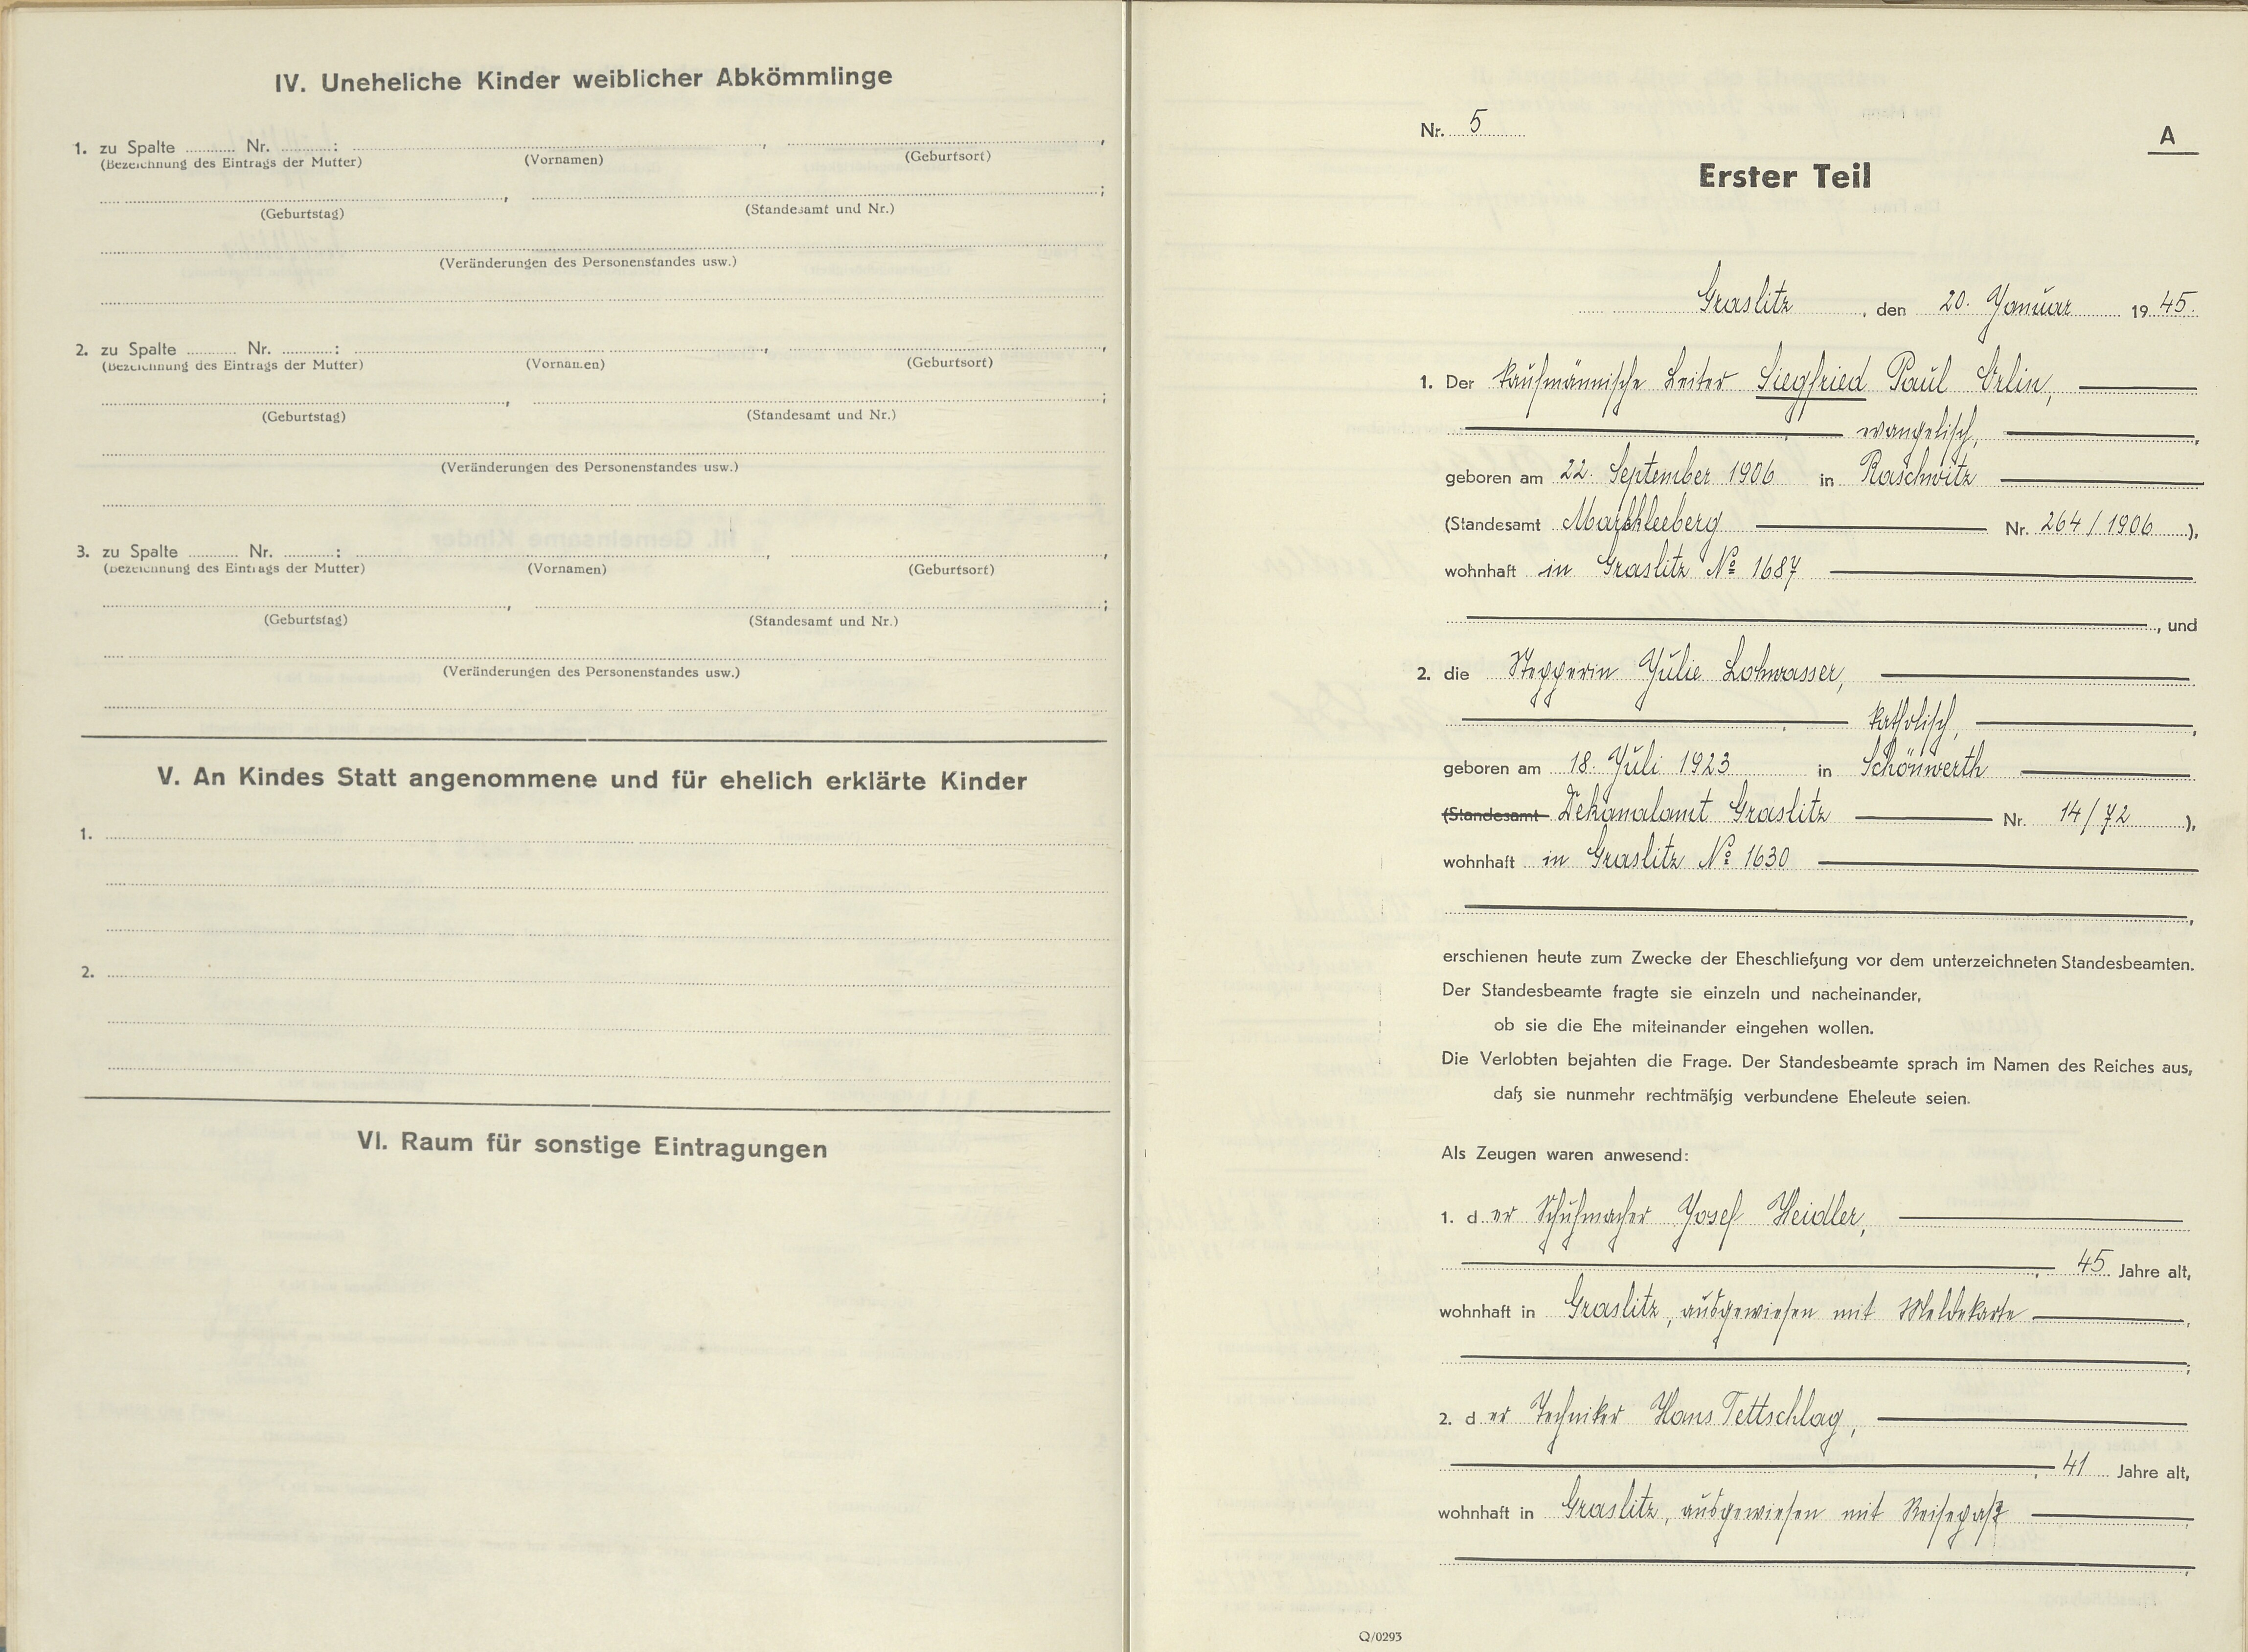 IV. Uneheliche Kinder weiblicher Abkömmlinge
1. zu Spalte ........... Nr. ...........: , ,
(Bezeichnung des Eintrags der Mutter) (Vornamen) (Geburtsort)
, ;
(Geburtstag) (Standesamt und Nr.)
(Veränderungen des Personenstandes usw.)
2. zu Spalte ........... Nr. ...........: , ,
(Bezeichnung des Eintrags der Mutter) (Vornamen) (Geburtsort)
, ;
(Geburtstag) (Standesamt und Nr.)
(Veränderungen des Personenstandes usw.)
3. zu Spalte ........... Nr. ...........: , ,
(Bezeichnung des Eintrags der Mutter) (Vornamen) (Geburtsort)
, ;
(Geburtstag) (Standesamt und Nr.)
(Veränderungen des Personenstandes usw.)
V. An Kindes Statt angenommene und für ehelich erklärte Kinder
1.
2.
VI. Raum für sonstige Eintragungen
Nr. 5
A
Erster Teil
Graslitz, den 20. Januar 1945.
1. Der kaufmännische Leiter Siegfried Paul Orlin,
evangelisch,
geboren am 22. September 1906 in Raschwitz
(Standesamt Markkleeberg Nr. 264/1906),
wohnhaft in Graslitz № 1687
, und
2. die Stepperin Julie Lohwasser,
katholisch,
geboren am 18. Juli 1923 in Schönwerth
(Standesamt Dekanalamt Graslitz Nr. 14/72),
wohnhaft in Graslitz № 1630
,
erschienen heute zum Zwecke der Eheschließung vor dem unterzeichneten Standesbeamten.
Der Standesbeamte fragte sie einzeln und nacheinander,
ob sie die Ehe miteinander eingehen wollen.
Die Verlobten bejahten die Frage. Der Standesbeamte sprach im Namen des Reiches aus,
daß sie nunmehr rechtmäßig verbundene Eheleute seien.
Als Zeugen waren anwesend:
1. der Schuhmacher Josef Heidler,
, 45 Jahre alt,
wohnhaft in Graslitz, ausgewiesen mit Meldekarte,
;
2. der Techniker Hans Tettschlag,
, 41 Jahre alt,
wohnhaft in Graslitz, ausgewiesen mit Reisepaß
Q/0293